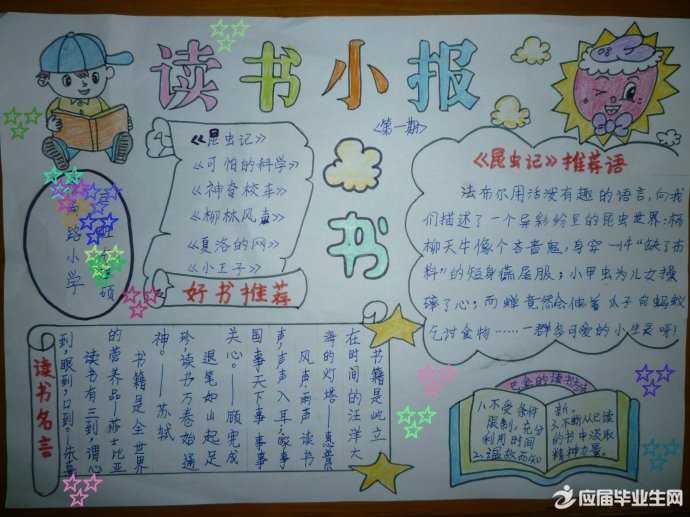 读书小报
<第一期>
《昆虫记》
《可怕的科学》
《神奇校车》
《柳林风声》
《夏洛的网》
《小王子》
好书推荐
书
路小学
《昆虫记》推荐语
法布尔用活泼有趣的语言,向我
们描述了一个异彩纷呈的昆虫世界:杨
柳天牛像个吝啬鬼,身穿一件"缺了布
料"的短身燕尾服;小甲虫为儿女操
碎了心;而蝉竟然会伸着 子向蚂蚁
乞讨食物……一群多可爱的小生灵呀!
读书名言
书籍是屹立
在时间的汪洋大
海的灯塔。——惠普
风声雨声读书
声,声声入耳;家事
国事天下事事事
关心。——顾宪成
退笔如山起足
珍读书万卷始通
神。——苏轼
书籍是全世界
的营养品—莎士比亚
读书有三到,谓心
到,眼到,口到。朱熹
的读书
1.不受条件
限制,充分
利用时间
2.温故而知
新。
3.不断从已读
的书中汲取
精神力量。
应届毕业生网